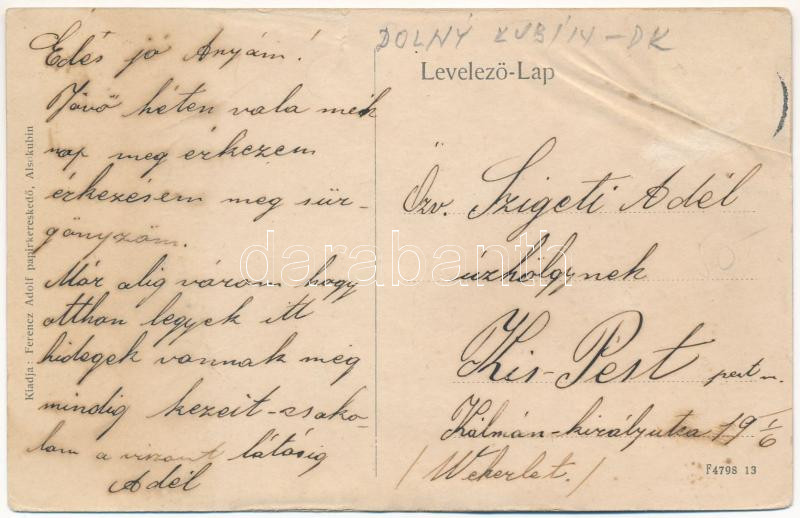 Edés jó Anyám!
Jövő héten vala mék
nap meg érkezem
érkezésem meg sür-
gönyzöm.
Már alig várom hogy
otthon legyek itt
hidegek vannak még
mindig kezeit-csoko-
lom a viszont látásig
Adél
Kiadja: Ferencz Adolf papirkereskedő, Alsokubin
DOLNÝ KUBÍN - DK
Levelező-Lap
Özv. Szigeti Adél
úrhölgynek
Kis-Pest pest m.
Kálmán-király utca 19 1/6
/Wekerlet./
F4798 13
darabanth